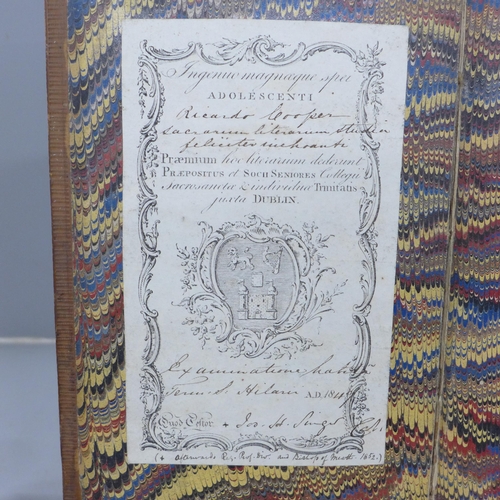 Ingenuo magnæque spei
ADOLESCENTI
Ricardo Cooper
sacrarum literarum studia
feliciter inchoanti
Præmium hoc literarium dederunt
PRÆPOSITUS et SOCII SENIORES Collegii
Sacrosanctæ & individuæ Trinitatis
juxta DUBLIN.
Examinatione habita
Term. S. Hilarii A.D. 184
Quod Testor + Jos. H. Singer
(+ afterwards Reg. Prof. Div. and Bishop of Meath 1852.)